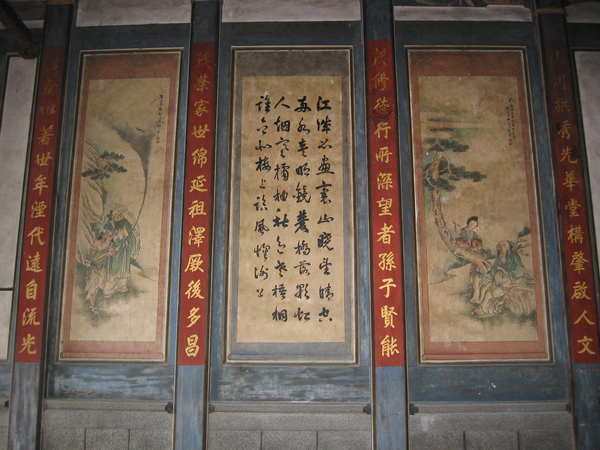 月拱秀光華堂構肇啟人文
修德行所深望者孫子賢能
江城如畫裏山曉望晴空
兩水夾明鏡雙橋落彩虹
人烟寒橘柚秋色老梧桐
誰念北樓上臨風懷謝公
榮家世綿延祖澤厥後多昌
著世年湮代遠自流光